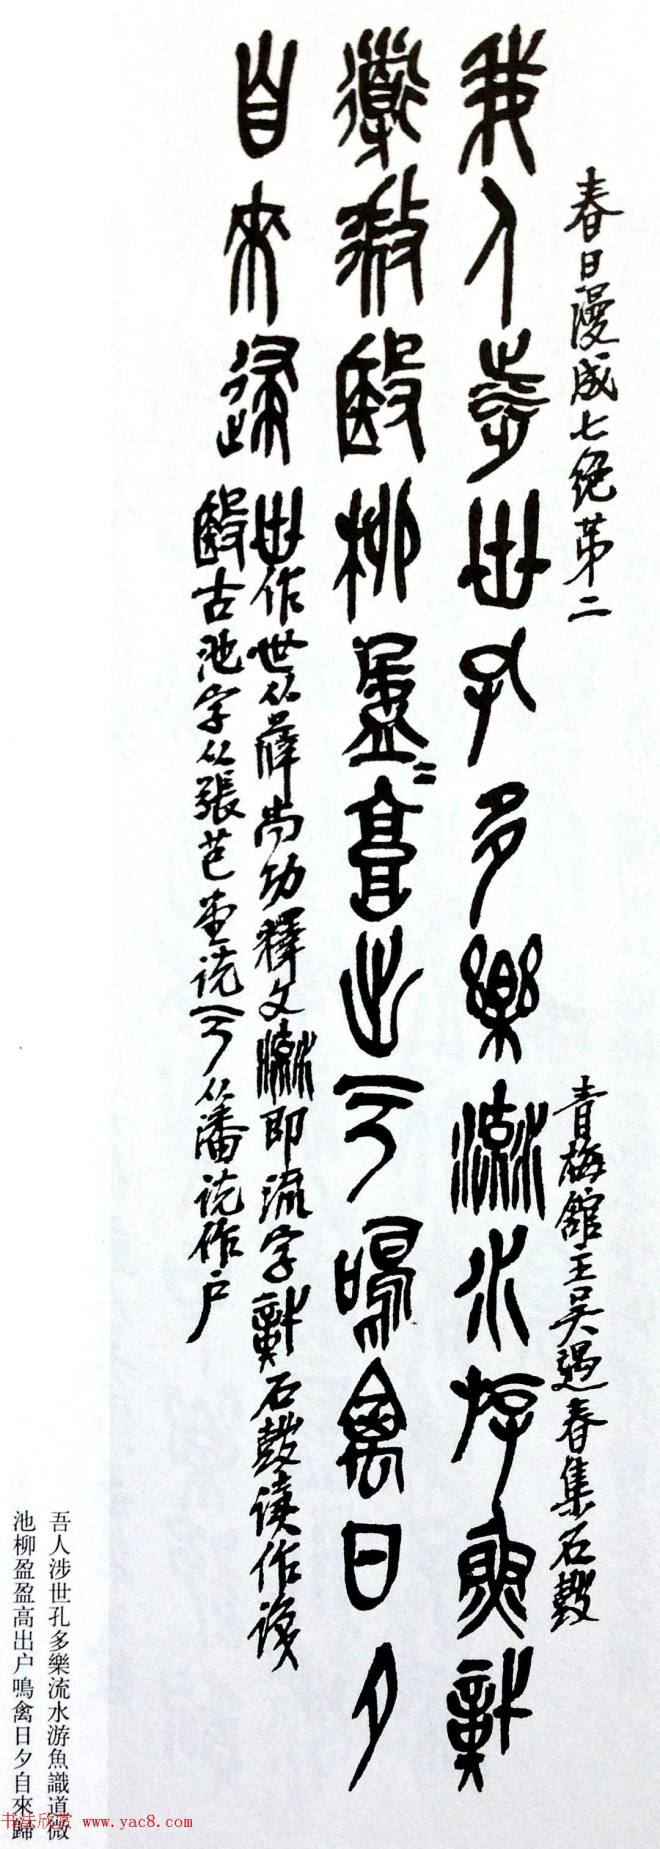 春日漫成七絕第二
青梅館主吴遇春集石鼓
吾人涉世孔多樂流水游魚識
道微池柳盈〻高出户鳴禽日夕
自來歸
世作世從薛尚功釋文流即流字 石鼓讀作識
池古池字從張芑堂説户從潘説作户
吾人涉世孔多樂流水游魚識道微
池柳盈盈高出户鳴禽日夕自來歸
书法欣赏 www.yac8.com